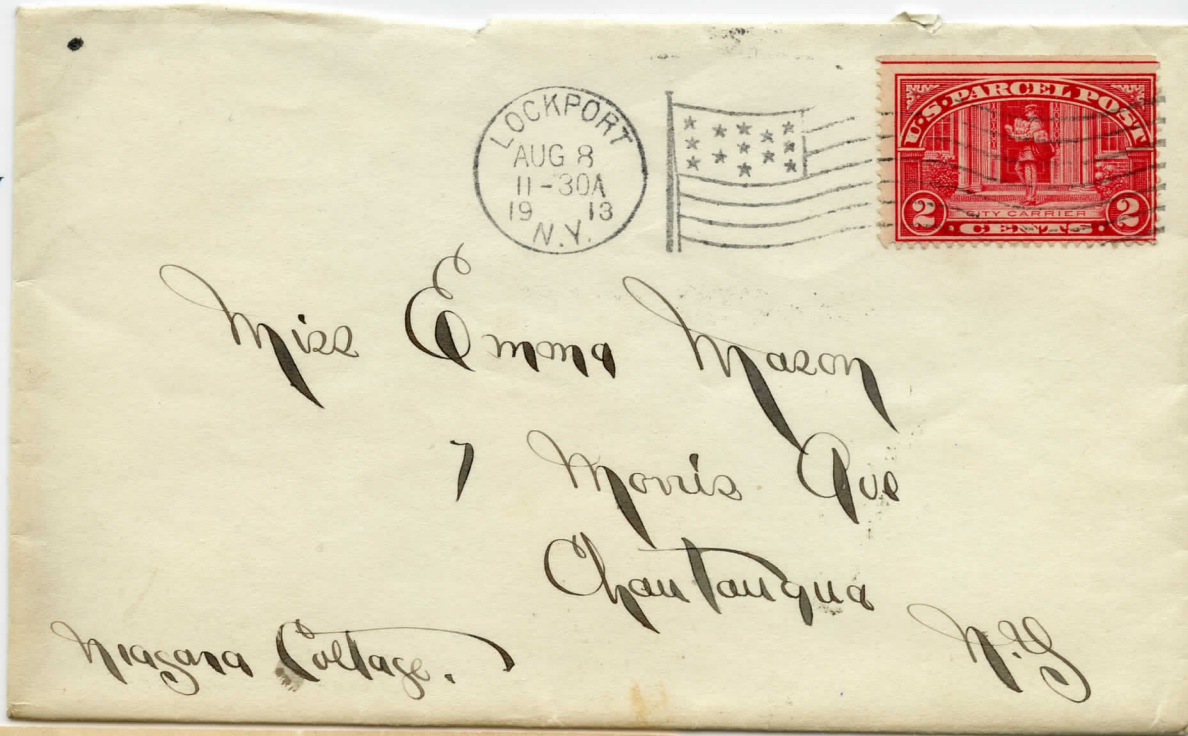 LOCKPORT
AUG 8
11-30A
19 13
N.Y.
U.S. PARCEL POST
CITY CARRIER
2 CENTS 2
Miss Emma Mason
7 Morris Ave
Chautauqua
N.Y
Niagara Cottage.